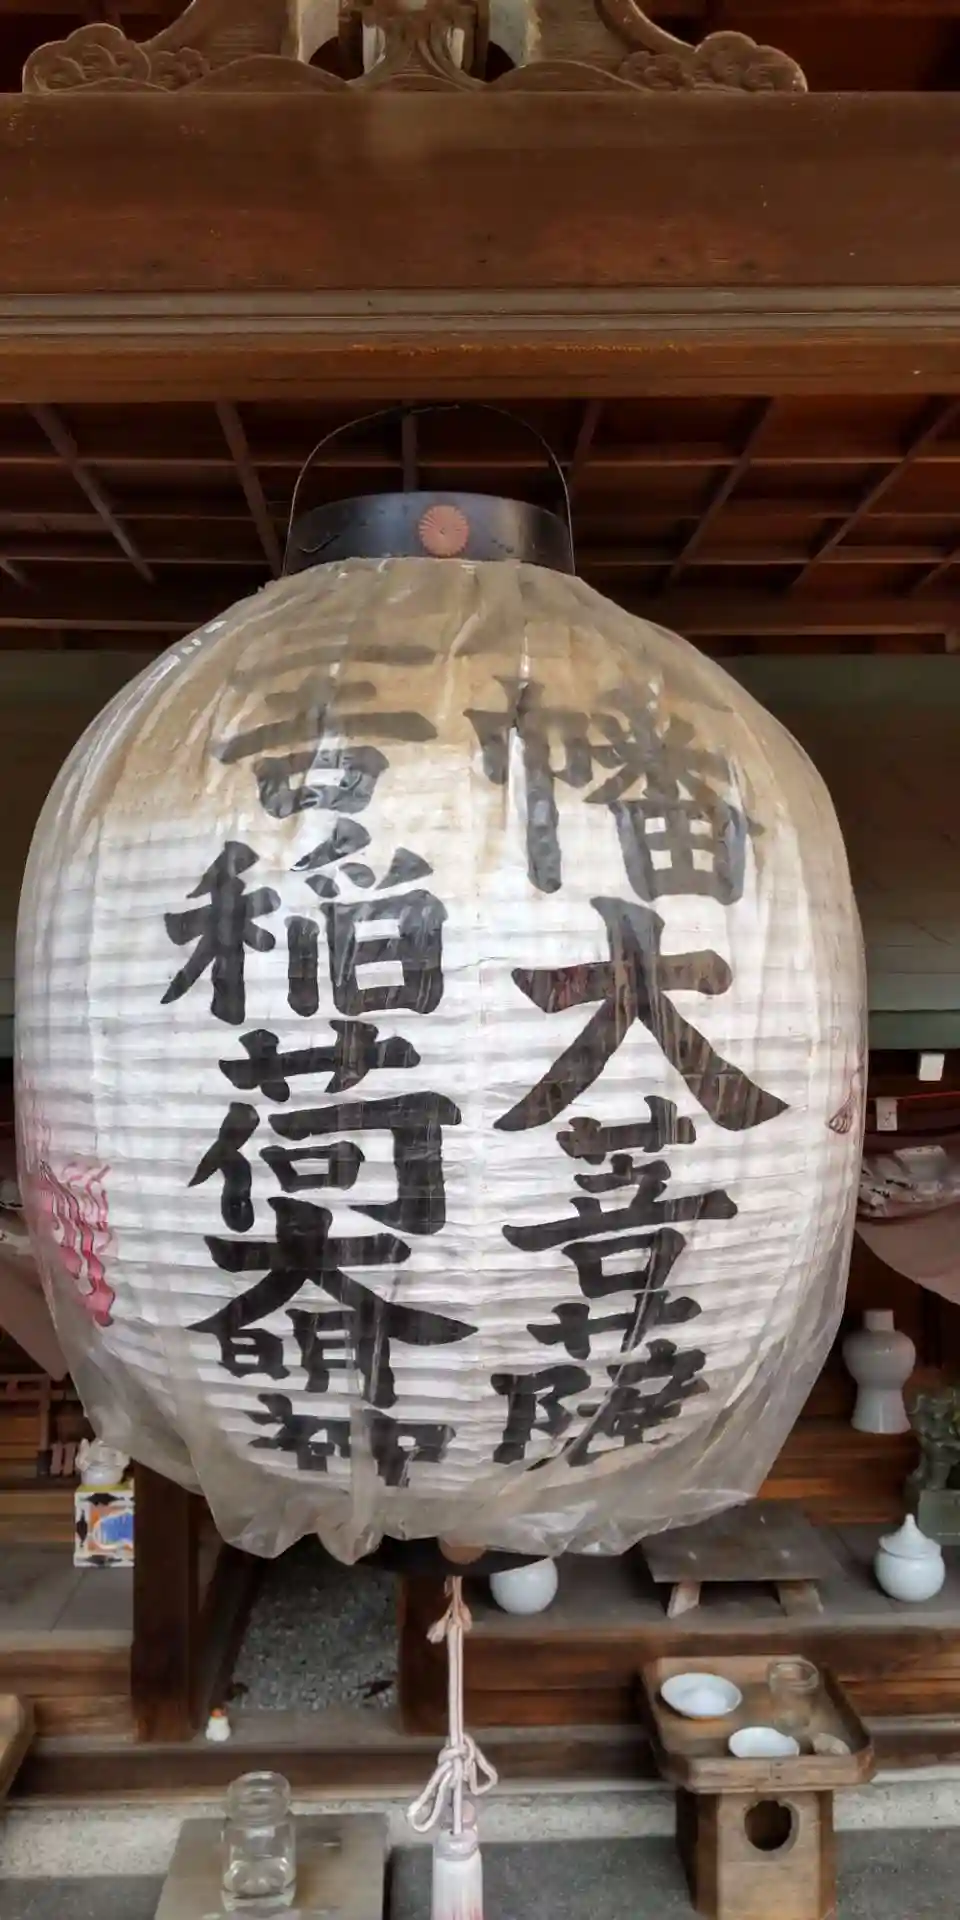 幡大菩薩
吉稲荷大明神